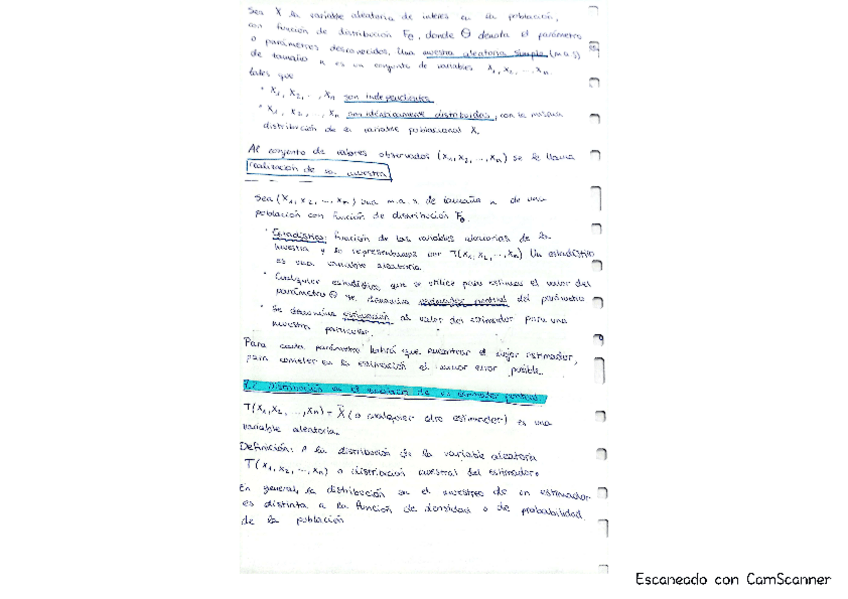 Sea X la variable aleatoria de interés en la población,
con función de distribución Fθ, donde θ denota el parámetro
o parámetros desconocidos. Una muestra aleatoria simple (m.a.s)
de tamaño n es un conjunto de variables X₁, X₂, ..., Xn
tales que
• X₁, X₂, ..., Xn son independientes
• X₁, X₂, ..., Xn son idénticamente distribuidas, con la misma
distribución de la variable poblacional X.
Al conjunto de valores observados (x₁, x₂, ..., xn) se le llama
realización de la muestra
Sea (X₁, X₂, ..., Xn) una m.a.s. de tamaño n de una
población con función de distribución Fθ.
• Estadístico: función de las variables aleatorias de la
muestra y lo representamos por T(X₁, X₂, ..., Xn) Un estadístico
es una variable aleatoria.
• Cualquier estadístico que se utilice para estimar el valor del
parámetro θ se denomina estimador puntual del parámetro
• Se denomina estimación al valor del estimador para una
muestra particular.
Para cada parámetro habrá que encontrar el mejor estimador,
para cometer en la estimación el menor error posible.
Distribución en el muestreo de un estimador puntual
T(X₁, X₂, ..., Xn) = X̄ (o cualquier otro estimador) es una
variable aleatoria.
Definición: la distribución de la variable aleatoria
T(X₁, X₂, ..., Xn) o distribución muestral del estimador
En general, la distribución en el muestreo de un estimador
es distinta a la función de densidad o de probabilidad
de la población
Escaneado con CamScanner